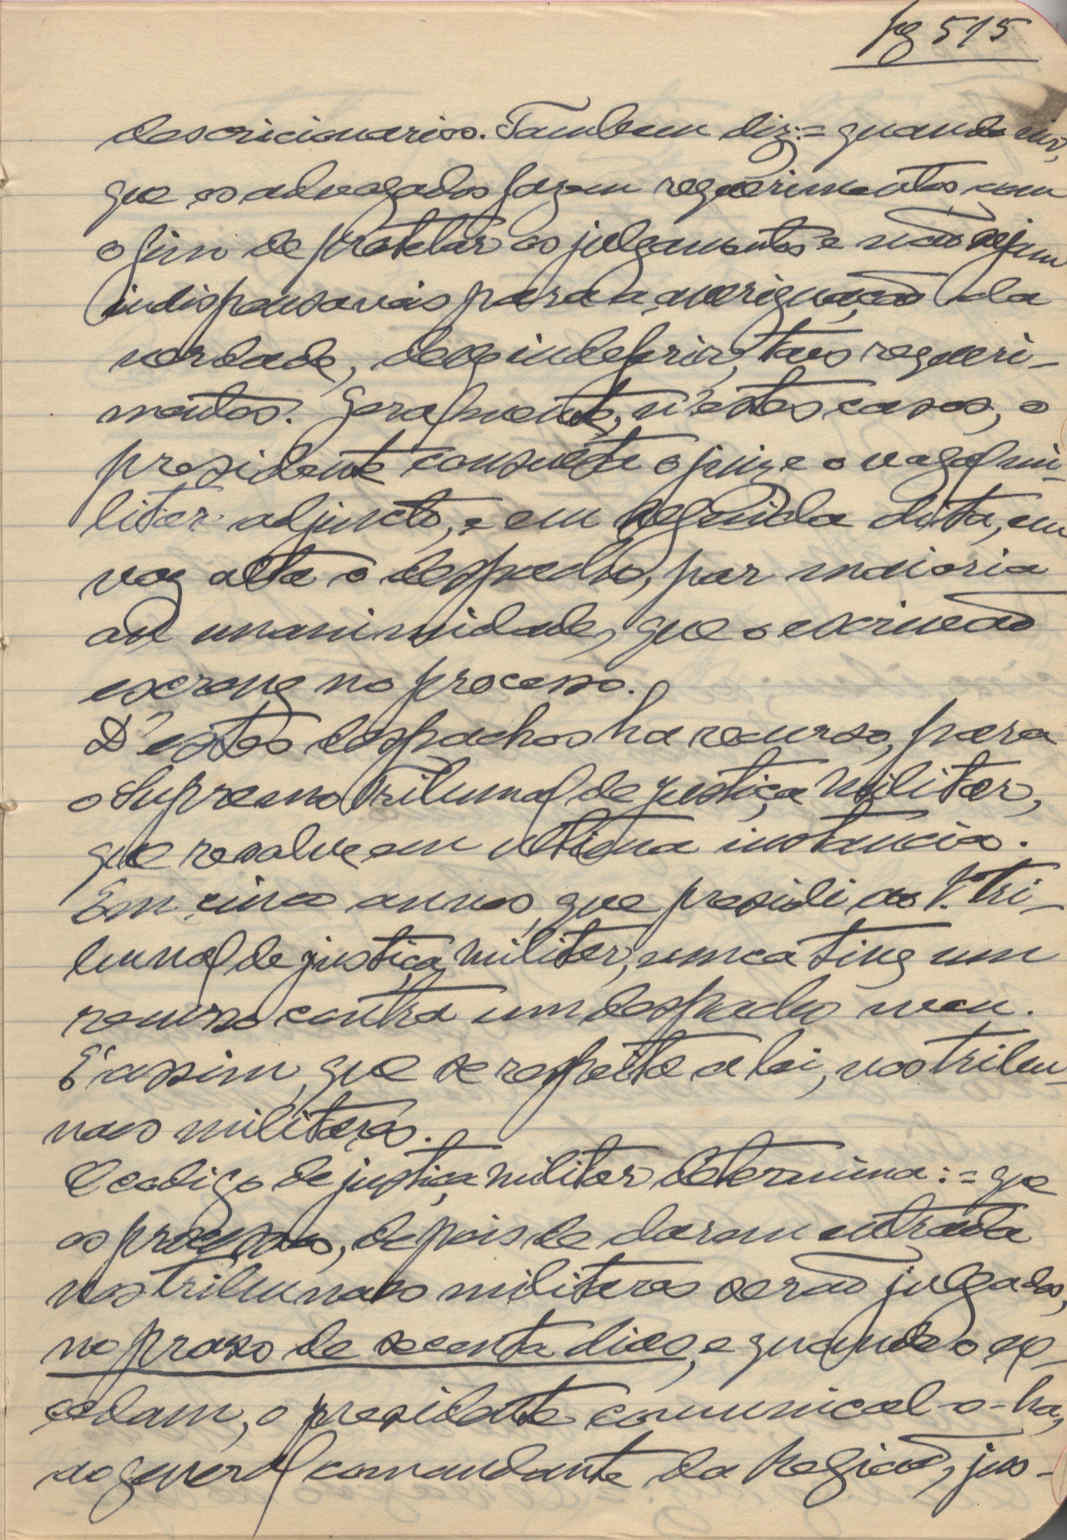 pg 515
descricionarios. Tambem diz:= quando vir,
que os advogados fazem requerimentos com
o fim de protelar os julgamentos e não sejam
indispensaveis para a averiguação da
verdade, deve indeferir, tais requeri-
mentos. Geralmente, n'estes casos, o
presidente consulta o juiz e o vogal mi-
litar adjuncto, e em seguida dita, em
voz alta o despacho, por maioria
ou unanimidade, que o escrivão
escreve no processo.
D'estes despachos ha recurso, para
o Supremo Tribunal de Justiça Militar,
que resolve em ultima instancia.
Em cinco annos, que presidi ao Tri-
bunal de justiça militar, nunca tive um
recurso contra um despacho meu.
E' assim, que se respeita a lei, nos tribu-
naes militares.
O codigo de justiça militar determina:= que
os processos, depois de darem entrada
nos tribunaes militares serão julgados,
no praso de secenta dias, e quando o ex-
cedam, o presidente comunical-o-ha,
ao general comandante da Região, jus-